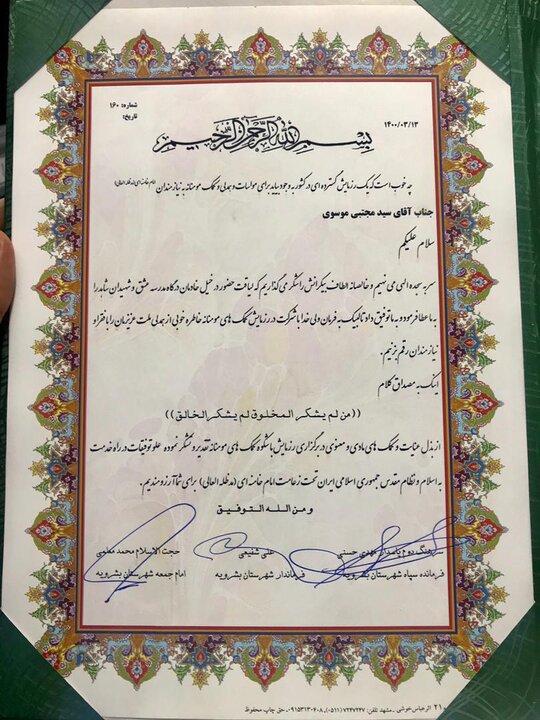 شماره: ۱۶۰
تاریخ:
۱۴۰۰/۰۳/۱۳
بسم الله الرحمن الرحیم
چه خوب است که یک رزمایش گسترده ای در کشور به وجود بیاید برای مواسات و همدلی و کمک مومنانه به نیازمندان (امام خامنه ای (مدظله العالی))
جناب آقای سید مجتبی موسوی
سلام علیکم
سر به سجده الهی می نهیم و خالصانه الطاف بیکرانش را شکر می گذاریم که لیاقت حضور در خیل خادمان درگاه مدرسه عشق و شهیدان شاهد را
به ما عطا فرمود و به ما توفیق داد تا لبیک به فرمان ولی خدا با شرکت در رزمایش کمک های مومنانه خاطره خوبی از همدلی ملت عزیزمان را با فقرا و
نیازمندان رقم بزنیم.
اینک به مصداق کلام
((من لم یشکر المخلوق لم یشکر الخالق))
از بذل عنایت و کمک های مادی و معنوی در برگزاری رزمایش باشکوه کمک های مومنانه تقدیر و تشکر نموده علو توفیقات در راه خدمت
به اسلام و نظام مقدس جمهوری اسلامی ایران تحت زعامت امام خامنه ای (مدظله العالی) برای شما آرزومندیم.
و من الله التوفیق
سرهنگ دوم پاسدار مهدی حسنی
فرمانده سپاه شهرستان بشرویه
علی شفیعی
فرماندار شهرستان بشرویه
حجت الاسلام محمد معلمی
امام جمعه شهرستان بشرویه
۲۱ اثر عباس خوشی ـ مشهد تلفن: ۷۲۴۷۲۴۷ (۰۵۱۱)، ۰۹۱۵۳۱۳۰۴۰۸، حق چاپ محفوظ